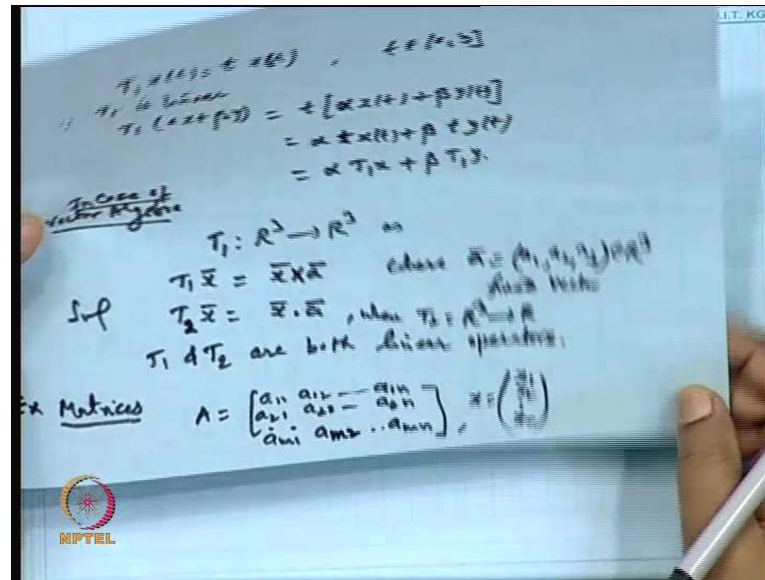 I.I.T. KG
T₁ x(t) = t x(t) ,
T₁ is linear
T₁ (αx+βy) = t [α x(t) + β y(t)]
= α t x(t) + β t y(t)
= α T₁x + β T₁y.
In case of
Vector Algebra
T₁ : R³ → R³ as
T₁ x̄ = x̄ × ā where ā = (a₁, a₂, a₃) ∈ R³
T₂ x̄ = x̄ . ā , when T₂ : R³ → R
T₁ & T₂ are both linear operators.
Ex Matrices A = [a₁₁ a₁₂ — a₁ₙ
a₂₁ a₂₂ — a₂ₙ
aₘ₁ aₘ₂ .. aₘₙ] , x =
NPTEL